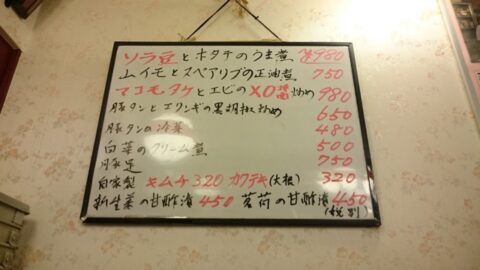 ソラ豆とホタテのうま煮 ¥980
山イモとスペアリブの正油煮 750
マコモタケとエビのXO醤炒め 980
豚タンとエリンギの黒胡椒炒め 650
豚タンの冷菜 480
白菜のクリーム煮 500
豚足 750
自家製 キムチ320 カクテキ(大根) 320
新生姜の甘酢漬450 茗荷の甘酢漬450
(税別)